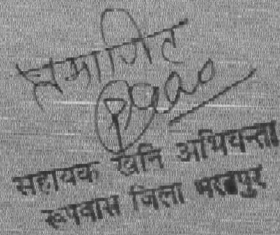 प्रमाणित
सहायक खनि अभियन्ता
रूपवास जिला भरतपुर